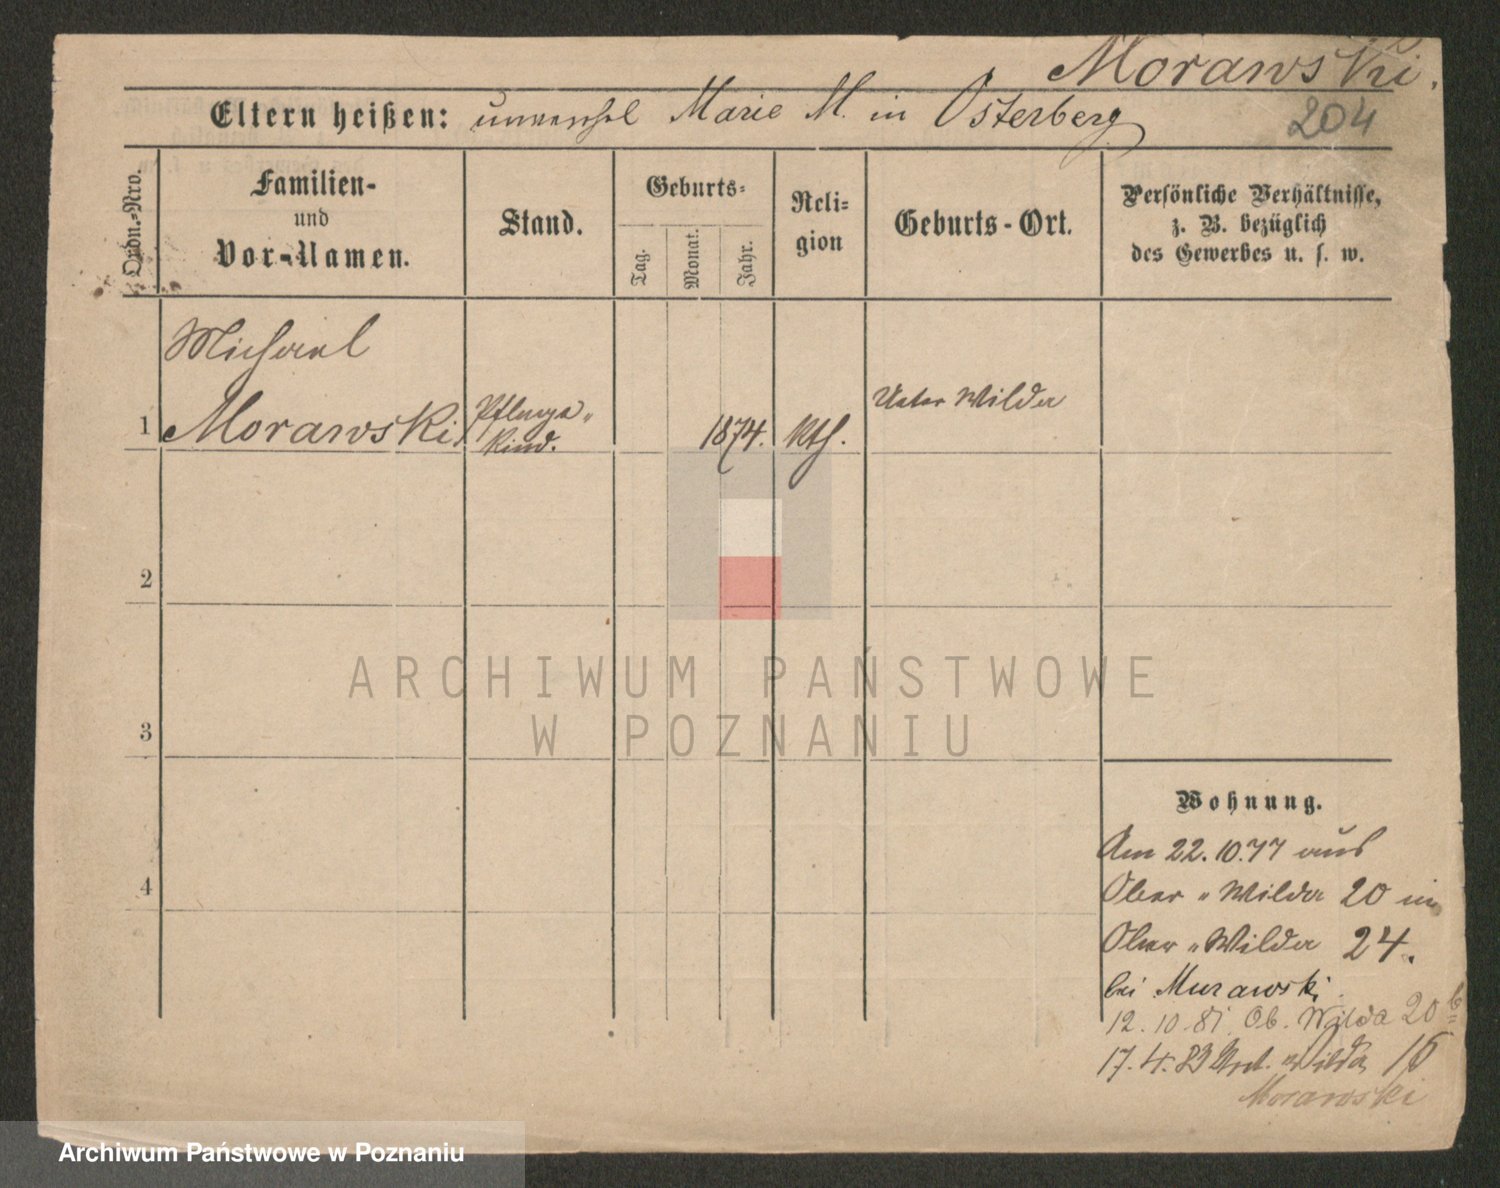 Morawski.
204
Eltern heißen: unverehel Marie M. in Osterberg
Ordn.-Nro.
Familien-
und
Vor-Namen.
Stand.
Geburts-
Tag.
Monat.
Jahr.
Reli-
gion
Geburts-Ort.
Persönliche Verhältnisse,
z. B. bezüglich
des Gewerbes u. s. w.
1
Michael
Morawski
Pflege-
kind.
1874.
kth.
Unter Wilda
2
3
4
Wohnung.
Am 22.10.77 aus
Ober-Wilda 20 in
Ober-Wilda 24.
bei Murawski
12.10.81. Ob. Wilda 20b
17.4.83 Unt. Wilda 16
Morawski
ARCHIWUM PAŃSTWOWE
W POZNANIU
Archiwum Państwowe w Poznaniu